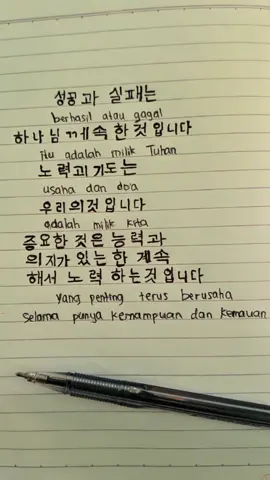 성꽁과 실패는
berhasil atau gagal
하나님 께속한것입니다
itu adalah milik Tuhan
노력괴기도는
usaha dan do'a
우리의것입니다
adalah milik kita
중요한 것은 능력과
의지가 있는한 계속
해서 노력 하는것입니다
Yang penting terus berusaha
Selama punya kemampuan dan kemauan